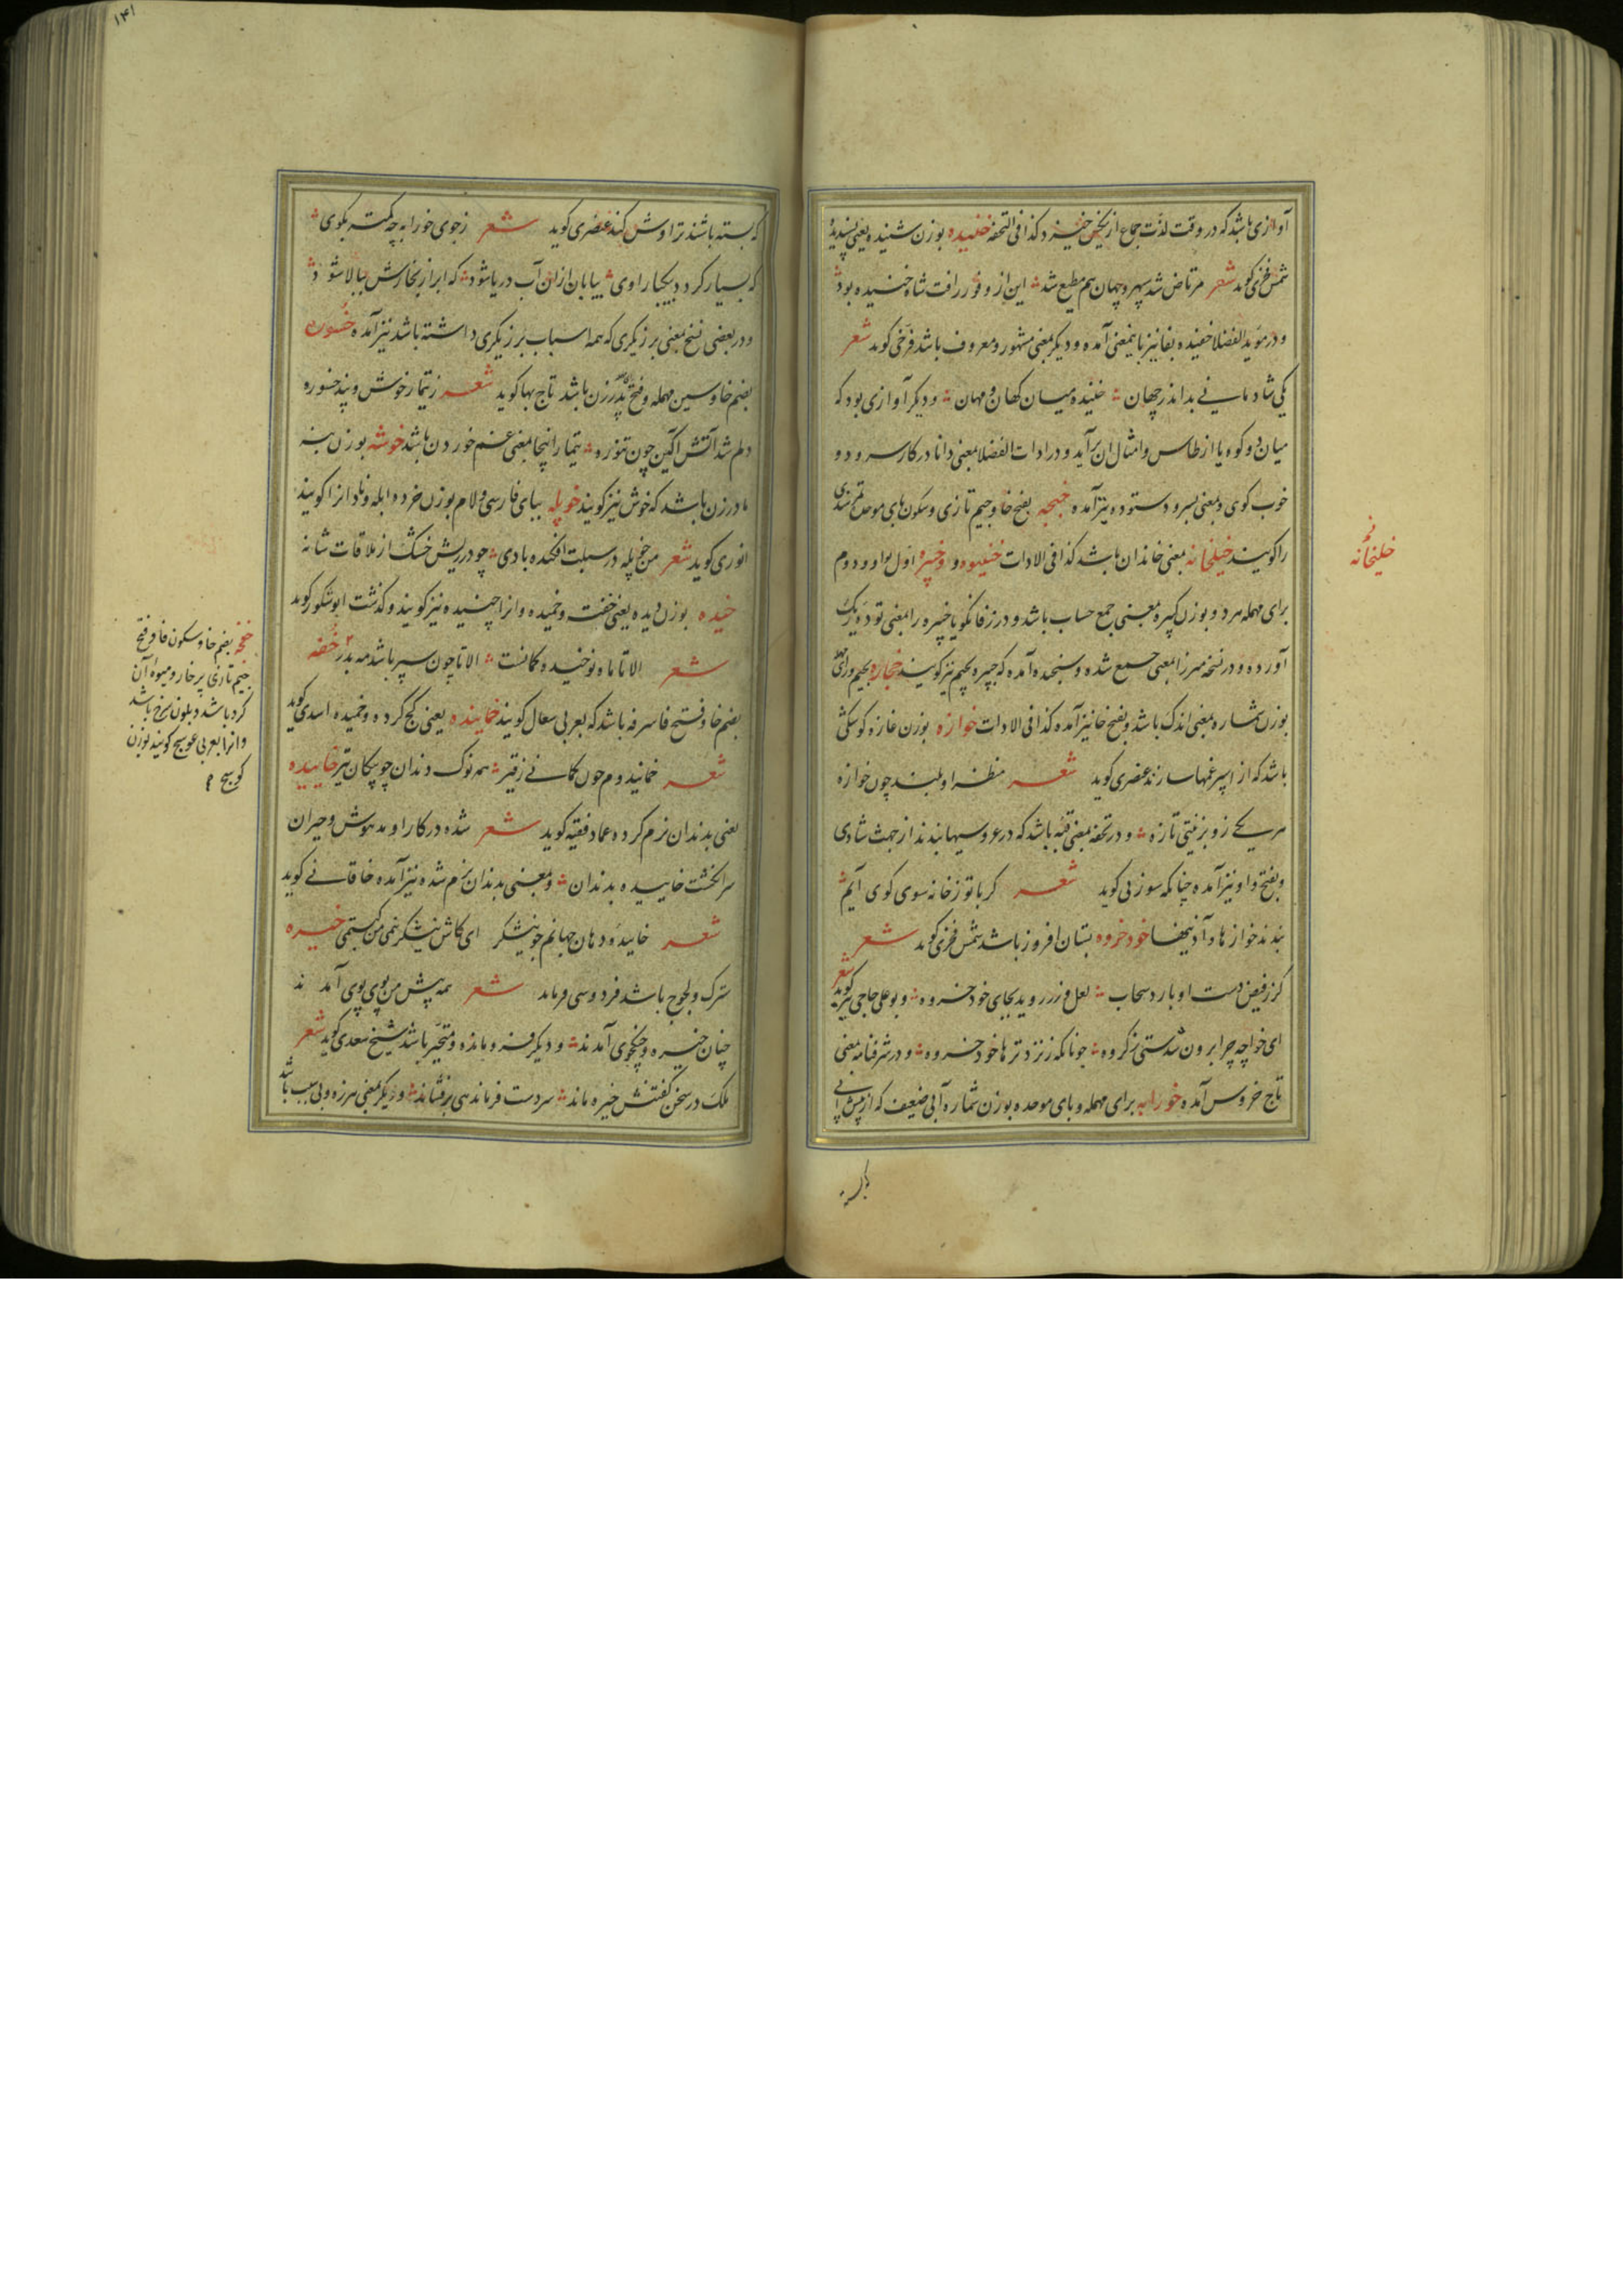 آوازی باشد که در وقت لذت جماع از بینی خیزد کذا فی التحفه خنیده بوزن شنیده یعنی پسندیده
شمس فخری کوید شعر مرتاض شد سپهر و جهان هم مطیع شد این از وفور رافت شاه خنیده بود
و در موید الفضلا خفیده بفا نیز باینمعنی آمده و دیکر بمعنی مشهور و معروف باشد فرخی کوید شعر
یکی شادمانی بد اندر جهان خنیده میان کهان و مهان و دیکر آوازی بود که
میان دو کوه یا از طاس و امثال ان برآید و در ادات الفضلا بمعنی دانا در کار سرود و
خوب کوی و بمعنی سرود ستوده نیز آمده خبجه بفتح خا و جیم تازی و سکون بای موحده تمر هندی
را کویند خیلخانه بمعنی خاندان باشد کذا فی الادات خنیوه و خپره اول بواو و دوم
برای مهمله مرد و بوزن کپره بمعنی جمع حساب باشد و در زفانکویا خپره را بمعنی توده ریک
آورده و در نسخه میرزا بمعنی جمع شده و سنجیده آمده که چپره بجیم نیز کویند خجاره بجیم و رای مهمله
بوزن شماره بمعنی اندک باشد و بفتح خا نیز آمده کذا فی الادات خوازه بوزن غازه کوشکی
باشد که از اسپرغمها سازند عنصری کوید شعر منظره او بلند چون خوازه
هر یکی زو بزینتی تازه و در تحفه بمعنی قبه باشد که در عروسیها بندند از جهت شادی
و بفتح واو نیز آمده چنانکه سوزنی کوید شعر کر با تو ز خانه سوی کوی آیم
بندند خوازها و آذینها خودخروه بستان افروز باشد شمس فخری کوید شعر
کر ز فیض دست او بارد سحاب لعل و زر روید بجای خودخروه و بوعلی حاجی نیز کوید شعر
ای خواجه چرا برون شدستی ز کروه جونانکه ز نزد ترها خودخروه و در شرفنامه بمعنی
تاج خروس آمده خورابه برای مهمله و بای موحده بوزن شماره آبی ضعیف که از پیش آبی
خلیخانه
که بسته باشند تراوش کند عنصری کوید شعر ز جوی خورابه چه کمتر بکوی
که بسیار کردد بیکبار اوی بیابان ازان آب دریا شود که ابر از بخارش ببالا شود
و در بعضی نسخ بمعنی برزیکری که همه اسباب برزیکری داشته باشد نیز آمده خسوره
بضم خا و سین مهمله و فتح را پدر زن باشد تاج بها کوید شعر ز تیمار خوش و پند خسوره
دلم شد آتش آکین چون تنوره تیمار اینجا بمعنی غم خوردن باشد خوشه بوزن
مادر زن باشد که خوش نیز کویند خوپله ببای فارسی و لام بوزن خرده ابله و نادانرا کویند
انوری کوید شعر من خوپله در سبلت افکنده بادی چو در ریش خشک از ملاقات شانه
خیده بوزن دیده یعنی خفت و خمیده و انرا چنیده نیز کویند و کذشت ابوشکور کوید
شعر الا تا ماه نو خیده کمانست الا تا چون سپر باشد مه بدر خفه
بضم خا و فتح فا سرفه باشد که بعربی سعال کویند خمانیده یعنی کج کرده و خمیده اسدی کوید
شعر خمانید دم چون کمانی ز قیر همه نوک دندان چو پیکان تیر خاییده
یعنی بدندان نرم کرده عماد فقیه کوید شعر شده در کار او مدهوش و حیران
سر انکشت خاییده بدندان و بمعنی بدندان نرم شده نیز آمده خاقانی کوید
شعر خاییده دهان جهانم چو نیشکر ای کاش نیشکر نیمی من کبستمی خیره
سترک و لجوج باشد فردوسی فرماید شعر همه پیش من پوی پوی آمدند
چنان خیره و جنکجوی آمدند و دیکر فرو مانده و متحیر باشد شیخ سعدی کوید شعر
ملک در سخن کفتنش خیره ماند سر دست فرماندهی برفشاند و دیکر بمعنی هرزه و بی سبب باشد
خفجه بضم خا و سکون فا و فتح
جیم تازی پر خار و میوه آن
کرد باشد و بلون سرخ باشد
و انرا بعربی عوسج کویند بوزن
کوسج
۱۴۱